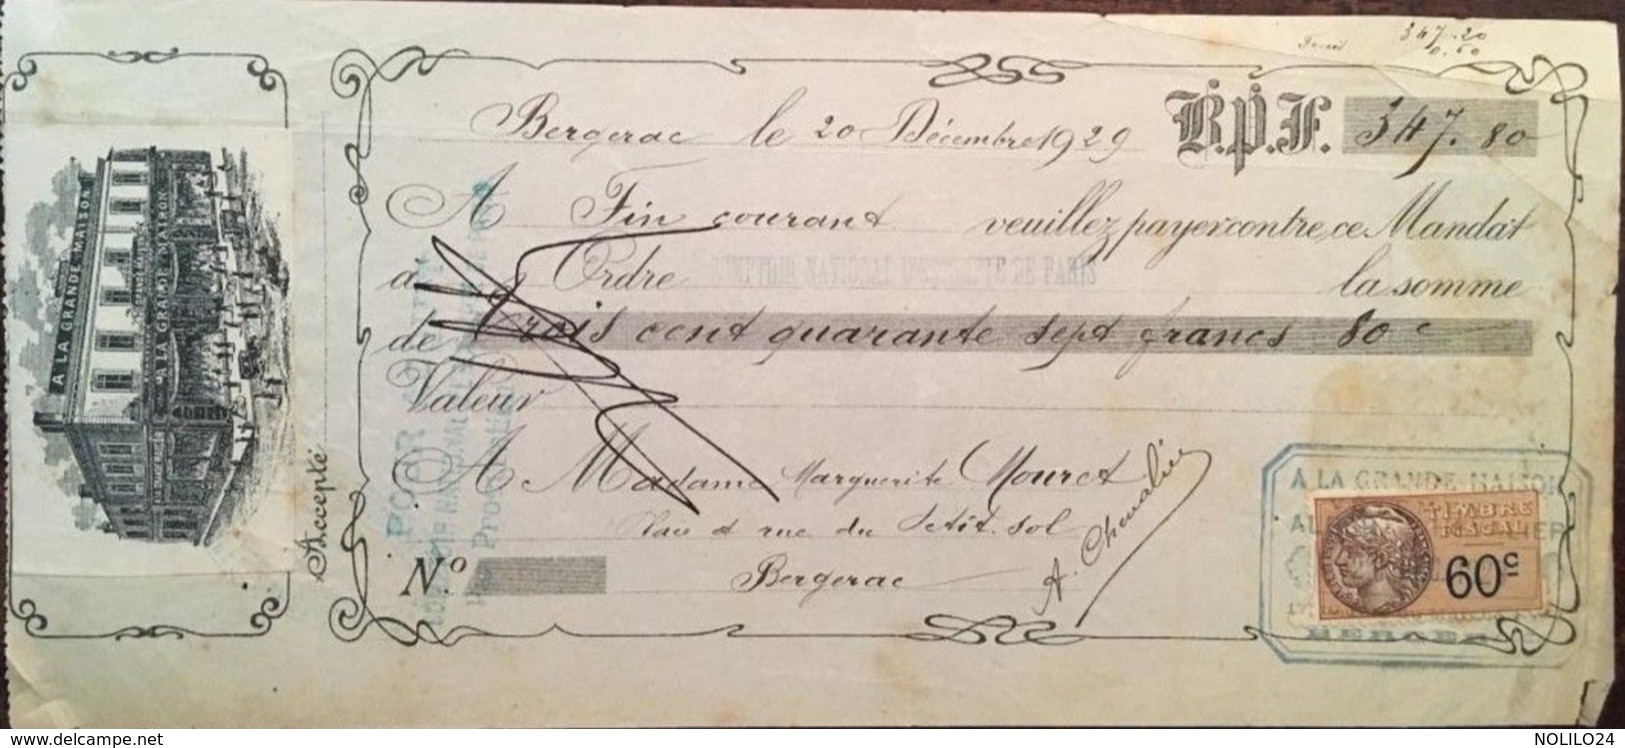 347.20
0.60
Bergerac le 20 Décembre 1929 B.P.F. 347.80
A Fin courant veuillez payer contre ce Mandat
à Ordre COMPTOIR NATIONAL D'ESCOMPTE DE PARIS la somme
de Trois cent quarante sept francs 80 c
Valeur
A Madame Marguerite Mouret
Place et rue du Petit. Sol
Bergerac
No.
A. Chevalier
Accepté
A LA GRANDE MAISON
A LA GRANDE MAISON
POUR
A LA GRANDE MAISON
TIMBRE
FISCAL
60c
BERGERAC
delcampe.net
NOLILO24